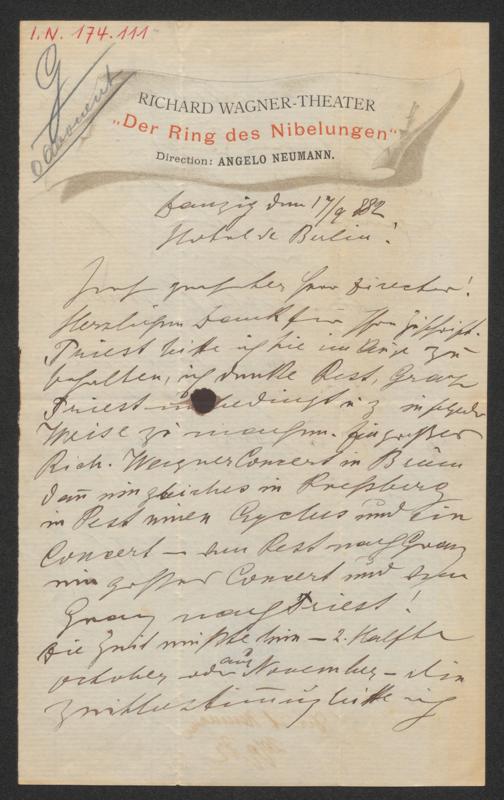 I.N. 174.111
G
RICHARD WAGNER-THEATER
„Der Ring des Nibelungen“
Direction: ANGELO NEUMANN.
Danzig den 17/9 882
Hotel de Berlin!
Sehr geehrter Herr Director!
Herzlichen Dank für Ihre Zuschrift.
Triest bitte ich Sie im Auge zu
behalten, ich denke Pest, Graz
Triest unbedingt u z in folgender
Weise zu machen. Ein großes
Rich. Wagner Concert in Brünn
dann ein gleiches in Preßburg
in Pest einen Cyclus und Ein
Concert – von Pest nach Graz
ein großes Concert und von
Graz nach Triest!
Die Zeit müßte sein – 2. Hälfte
October oder auch November – die
Zeitbestimmung bitte ich